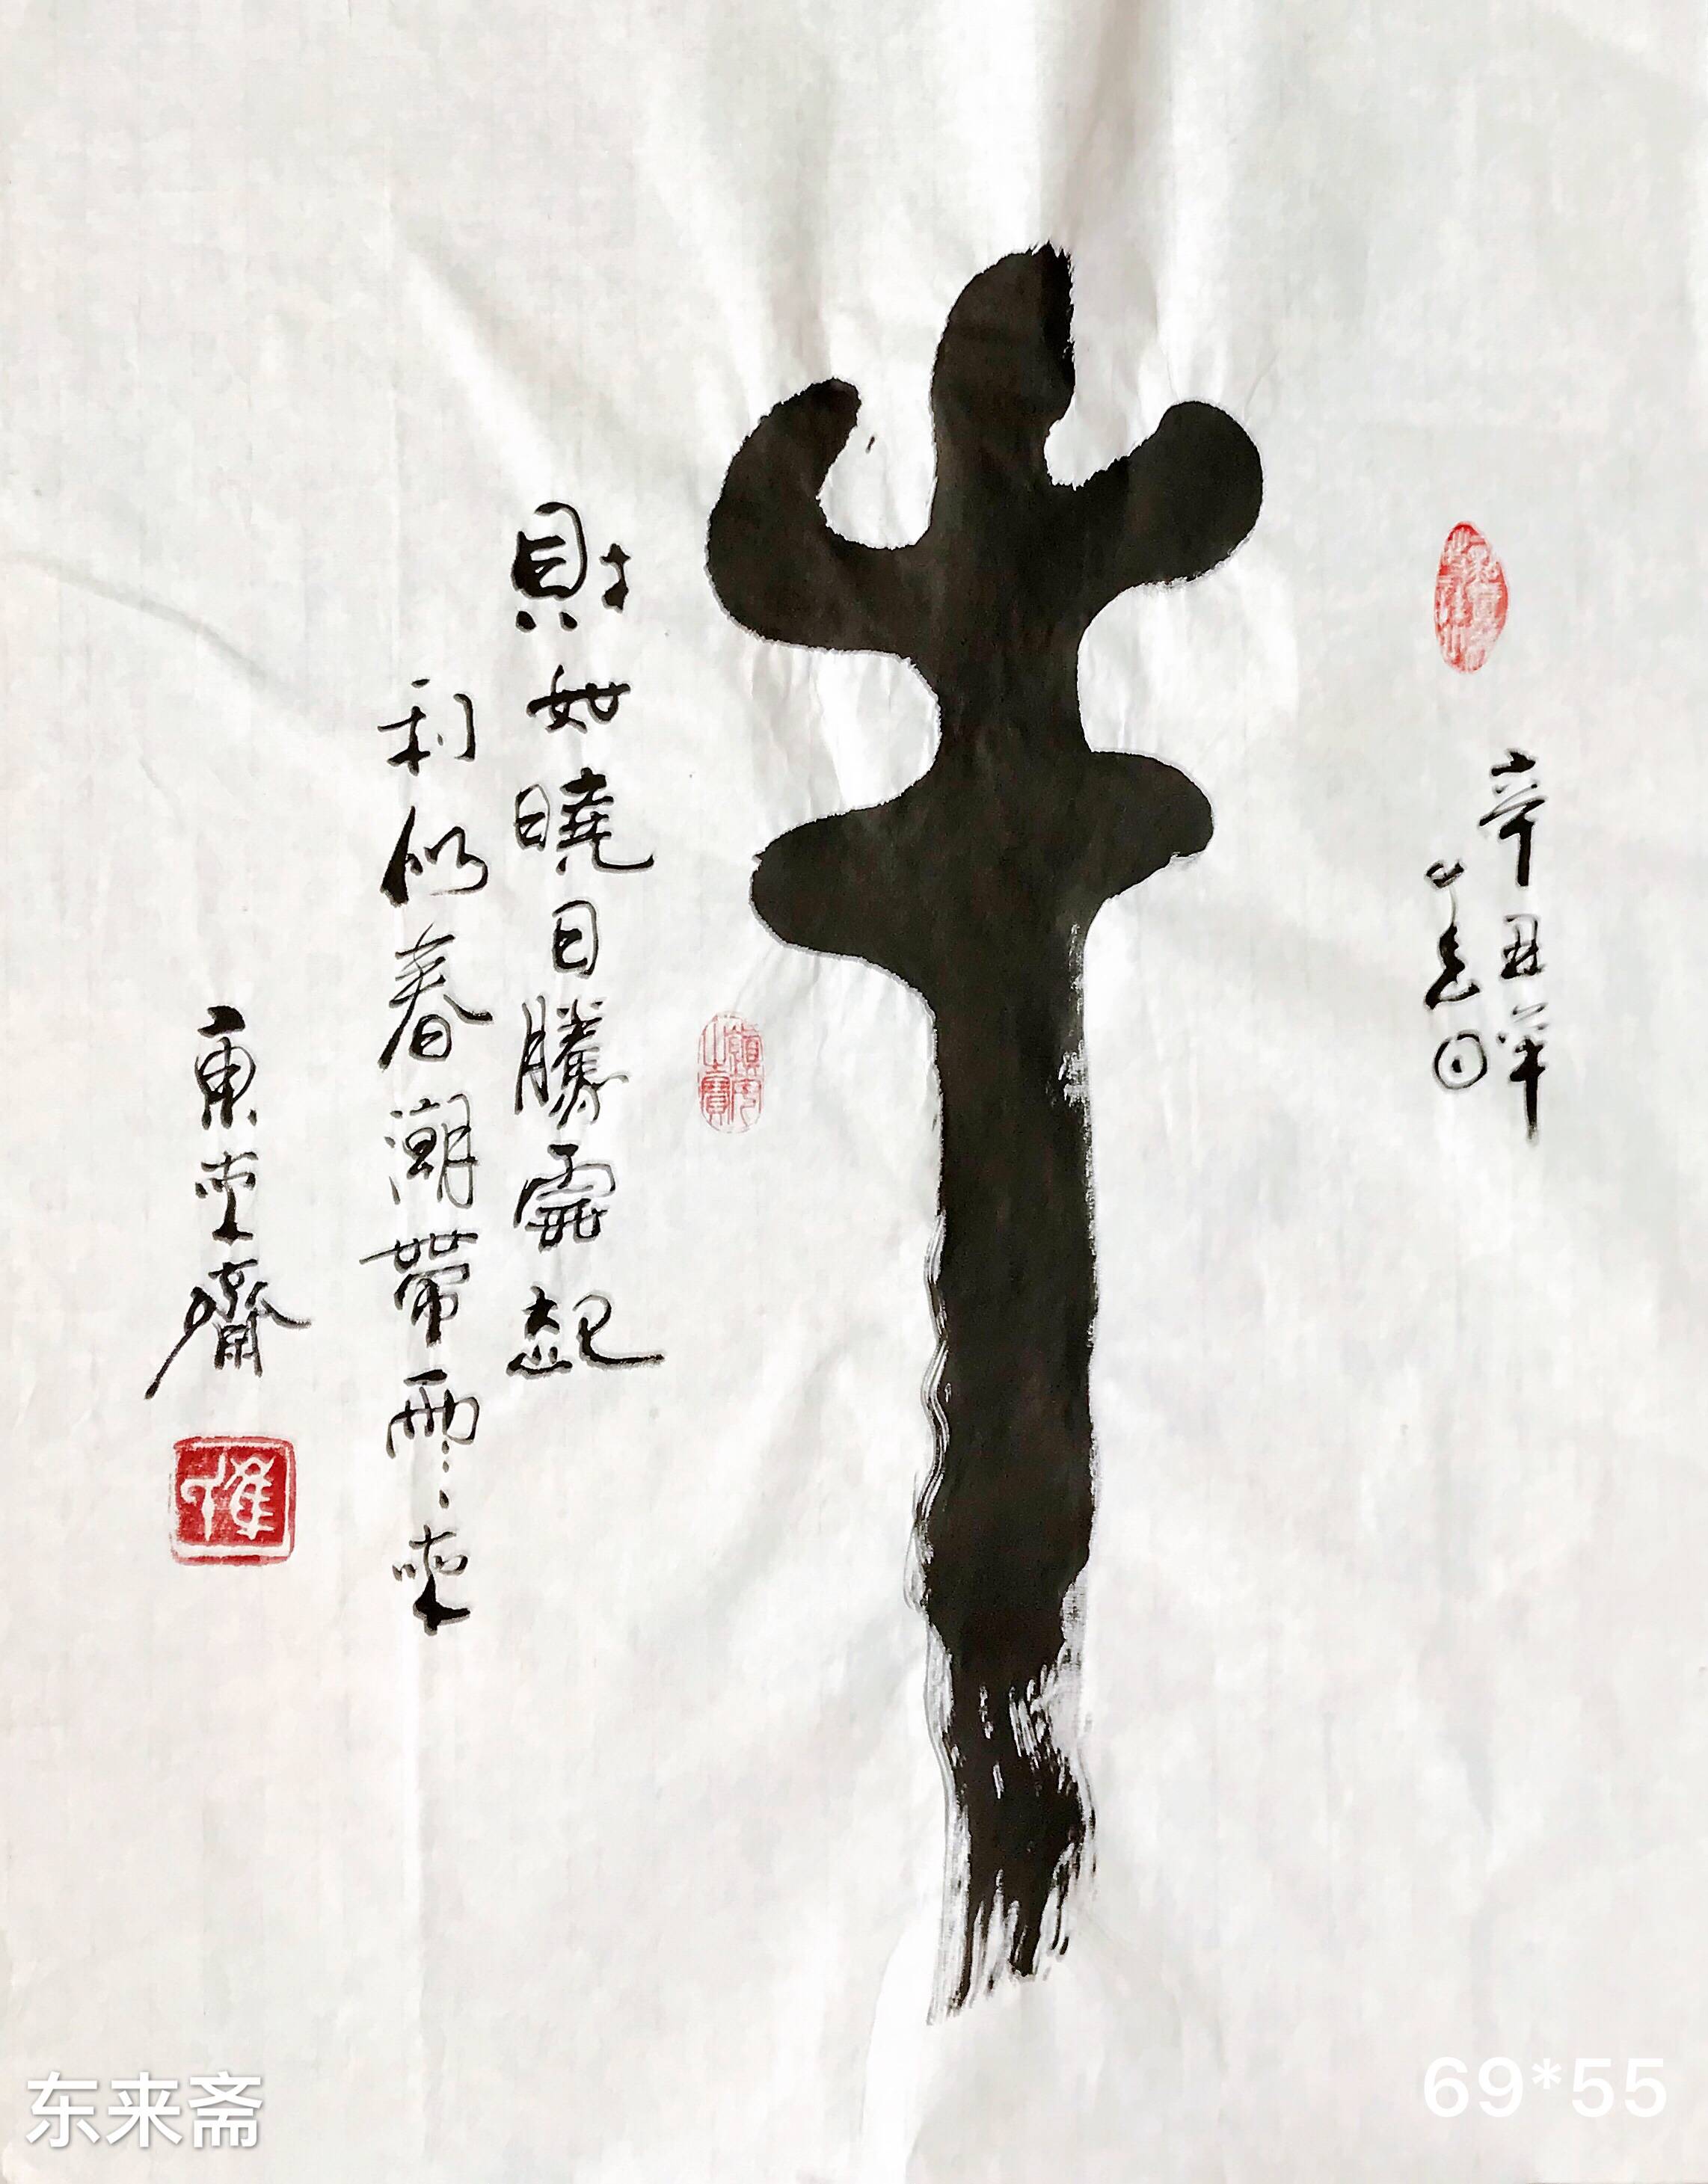 牛
辛丑年
吉日
財如曉日騰雲起
利似春潮帶雨來
東來齋
东来斋
69*55